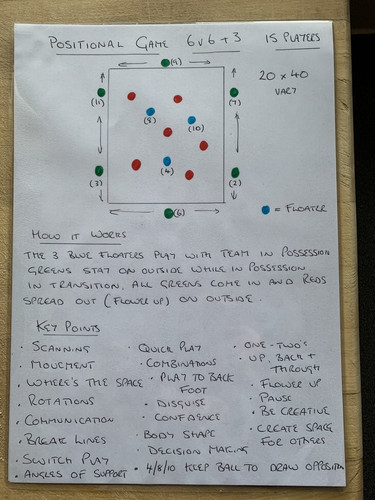 POSITIONAL GAME 6v6+3 15 PLAYERS
(9)
20 x 40
VARY
(11)
(7)
(8)
(10)
(4)
(3)
(2)
(6)
= FLOATER
HOW IT WORKS
THE 3 BLUE FLOATERS PLAY WITH TEAM IN POSSESSION
GREENS STAY ON OUTSIDE WHILE IN POSSESSION
IN TRANSITION, ALL GREENS COME IN AND REDS
SPREAD OUT (FLOWER UP) ON OUTSIDE.
KEY POINTS
· SCANNING
· MOVEMENT
· WHERE'S THE SPACE
· ROTATIONS
· COMMUNICATION
· BREAK LINES
· SWITCH PLAY
· ANGLES OF SUPPORT
· QUICK PLAY
· COMBINATIONS
· PLAY TO BACK
FOOT
· DISGUISE
· CONFIDENCE
· BODY SHAPE
· DECISION MAKING
· 4/8/10 KEEP BALL TO DRAW OPPOSITION
· ONE-TWO'S
· UP, BACK +
THROUGH
· FLOWER UP
· PAUSE
· BE CREATIVE
· CREATE SPACE
FOR OTHERS